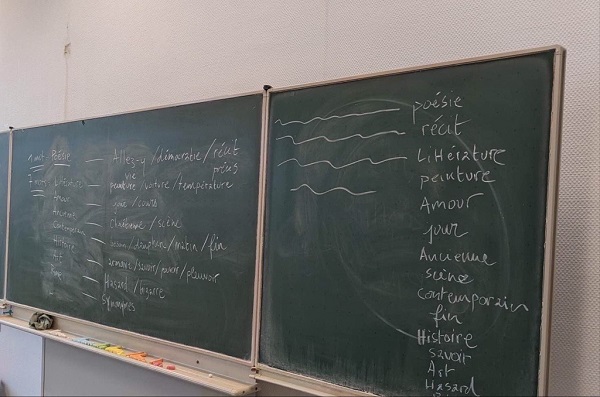 1 mot Poésie — Allez-y / démocratie / récit
vie pris
Littérature — peinture / voiture / température
Amour — / cours
Ancienne — / scène
Contemporain — / dauphin / matin / fin
Histoire — / savoir / / pleuvoir
Art — Hasard / bizarre
Synonymes
poésie
récit
Littérature
peinture
Amour
jour
Ancienne
scène
Contemporain
fin
Histoire
savoir
Art
Hasard